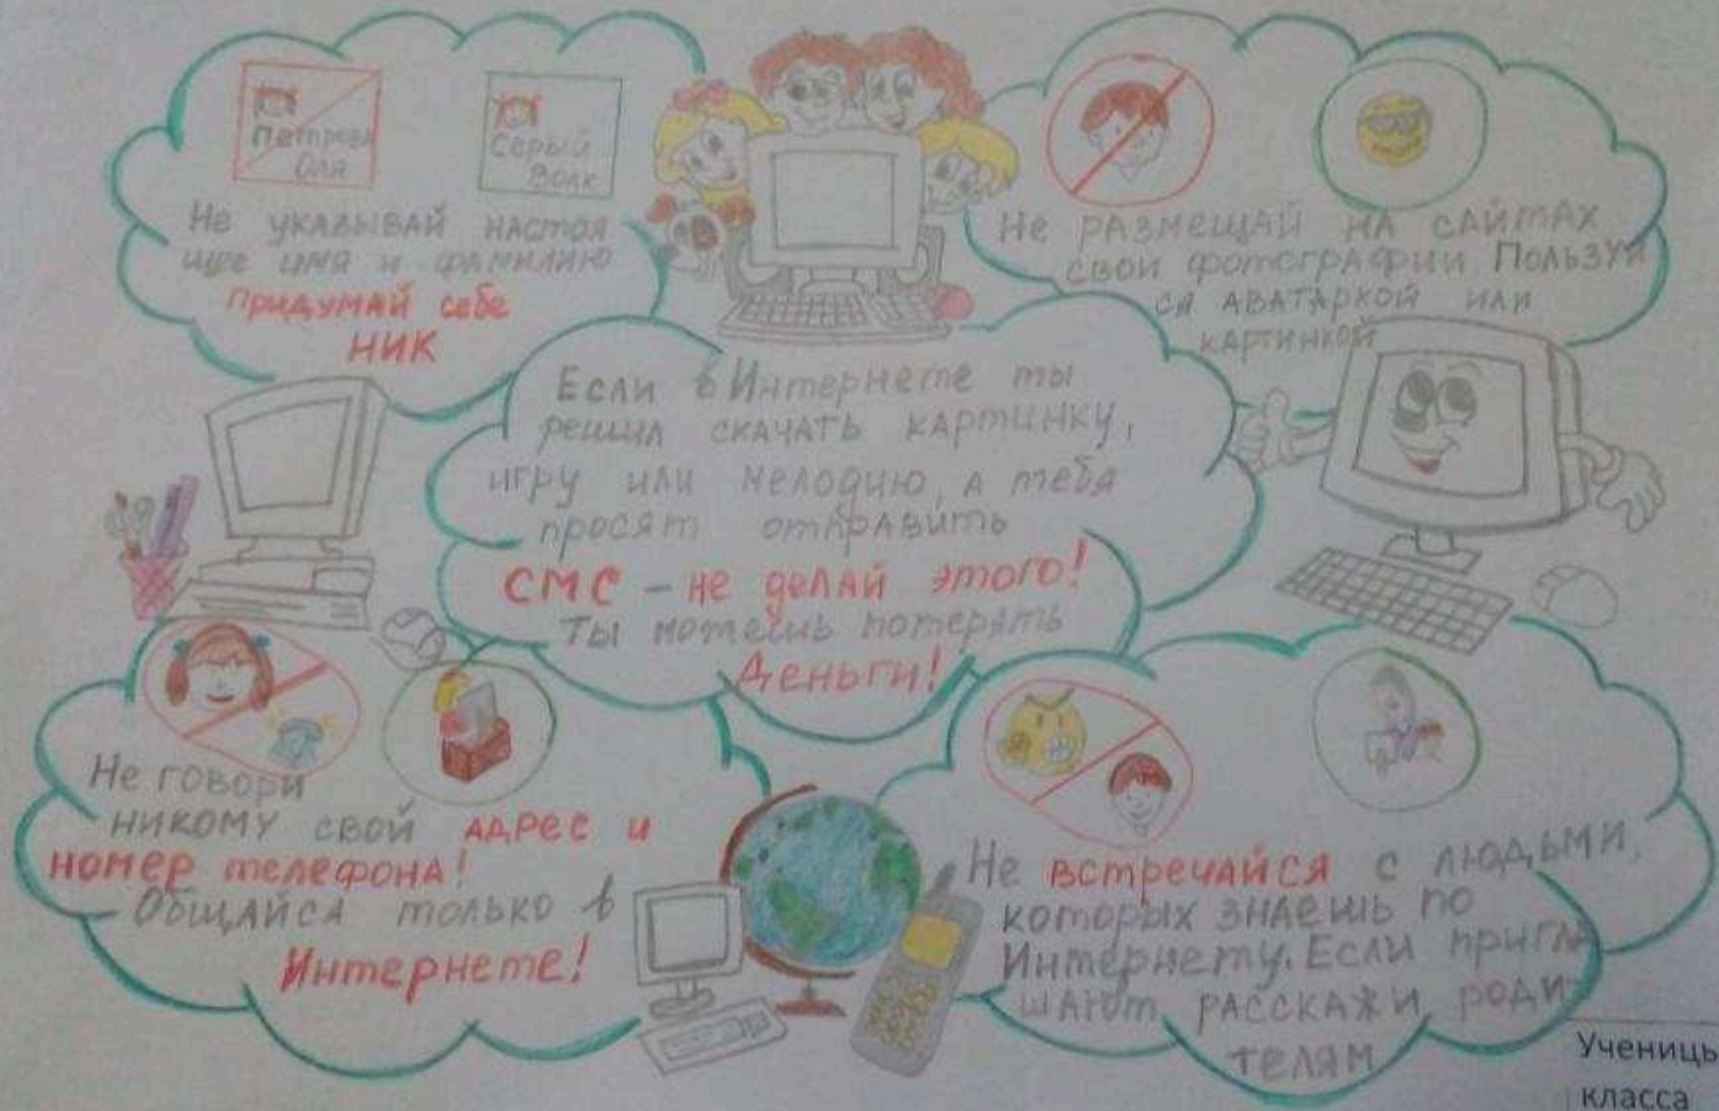 Петрова
Оля
Серый
Волк
Не указывай настоя
щее имя и фамилию
Придумай себе
НИК
Не размещай на сайтах
свои фотографии Пользуй
ся аватаркой или
картинкой
Если в Интернете ты
решил скачать картинку,
игру или мелодию, а тебя
просят отправить
СМС – не делай этого!
Ты можешь потерять
Деньги!
Не говори
никому свой адрес и
номер телефона!
Общайса только в
Интернете!
Не встречайся с людьми,
которых знаешь по
Интернету. Если пригла
шают расскажи роди-
телям
Учениць
класса